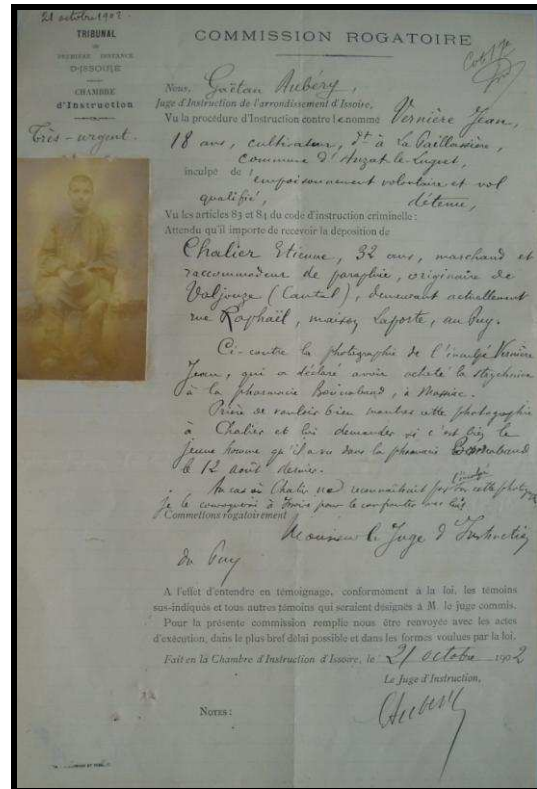 21 octobre 1902.
TRIBUNAL
DE
PREMIÈRE INSTANCE
D'ISSOIRE
CHAMBRE
d'Instruction
Très-urgent.
COMMISSION ROGATOIRE
Nous, Gaëtan Aubéry,
Juge d'Instruction de l'arrondissement d'Issoire,
Vu la procédure d'Instruction contre le nommé Vernière Jean,
18 ans, cultivateur, dt à La Paillassère,
commune d'Anzat le Luguet,
inculpé de empoisonnement volontaire et vol
qualifié, détenu,
Vu les articles 83 et 84 du code d'instruction criminelle :
Attendu qu'il importe de recevoir la déposition de
Chalier Etienne, 32 ans, marchand et
raccommodeur de parapluie, originaire de
Valjouze (Cantal), demeurant actuellement
rue Raphaël, maison Laporte, au Puy.
Ci-contre la photographie de l'inculpé Vernière
Jean, qui a déclaré avoir acheté la strychnine
à la pharmacie à Massiac.
Prière de vouloir bien montrer cette photographie
à Chalier et lui demander si c'est bien le
jeune homme qu'il a vu dans la pharmacie
le 12 août dernier.
Au cas où Chalier ne reconnaîtrait pas l'inculpé sur cette photog.
je le convoquerai à Issoire pour le confronter avec lui.
Commettons rogatoirement
Monsieur le Juge d'Instruction
du Puy
A l'effet d'entendre en témoignage, conformément à la loi, les témoins
sus-indiqués et tous autres témoins qui seraient désignés à M le juge commis.
Pour la présente commission remplie nous être renvoyée avec les actes
d'exécution, dans le plus bref délai possible et dans les formes voulues par la loi.
Fait en la Chambre d'Instruction d'Issoire, le 21 octobre 1902
Le Juge d'Instruction,
Aubéry
NOTES :